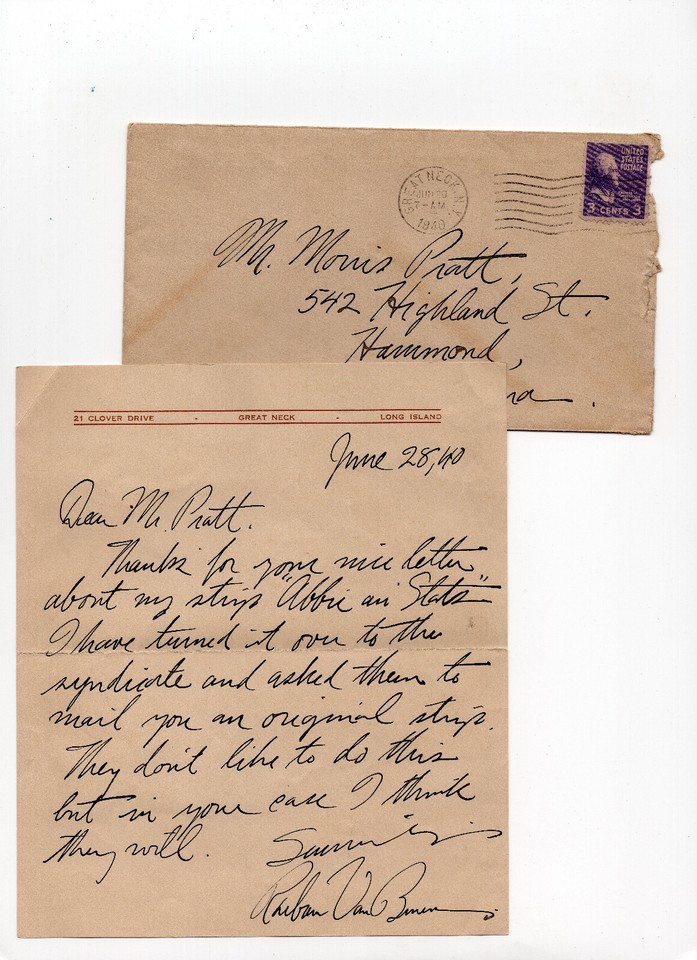 UNITED
STATES
POSTAGE
3 CENTS 3
GREAT NECK, N.Y.
JUN
7-AM
1940
Mr. Morris Pratt,
542 Highland St.
Hammond,
na.
21 CLOVER DRIVE - GREAT NECK - LONG ISLAND
June 28, 40
Dear Mr. Pratt.
Thanks for your nice letter
about my strip "Abbie an Slats"
I have turned it over to the
syndicate and asked them to
mail you an original strip.
They don't like to do this
but in your case I think
they will. Sincerely
Raeburn Van Buren